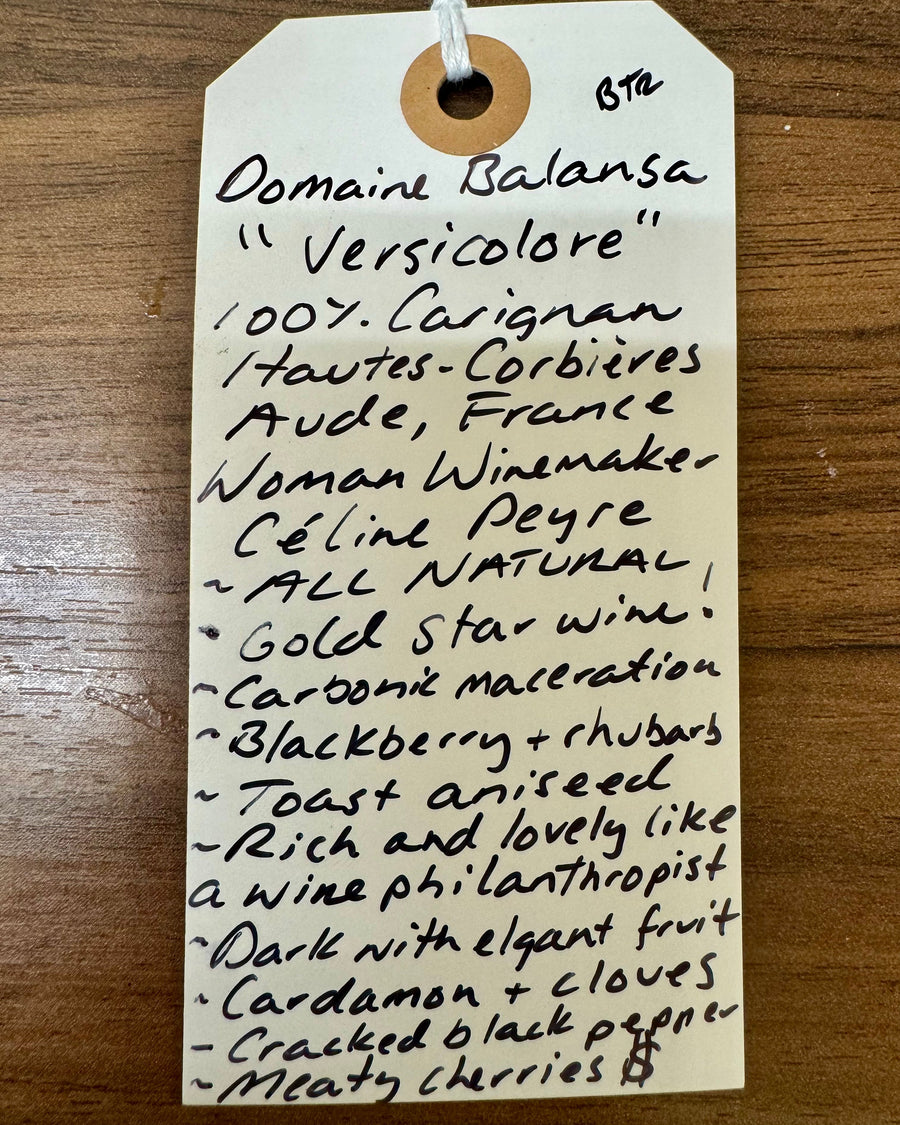 BTR
Domaine Balansa
"Versicolore"
100% Carignan
Hautes-Corbières
Aude, France
Woman Winemaker
Céline Peyre
~ ALL NATURAL
• Gold Star wine!
~ Carbonic maceration
~ Blackberry + rhubarb
~ Toast aniseed
~ Rich and lovely like
a wine philanthropist
~ Dark with elgant fruit
~ Cardamon + cloves
- Cracked black pepper
~ Meaty cherries $